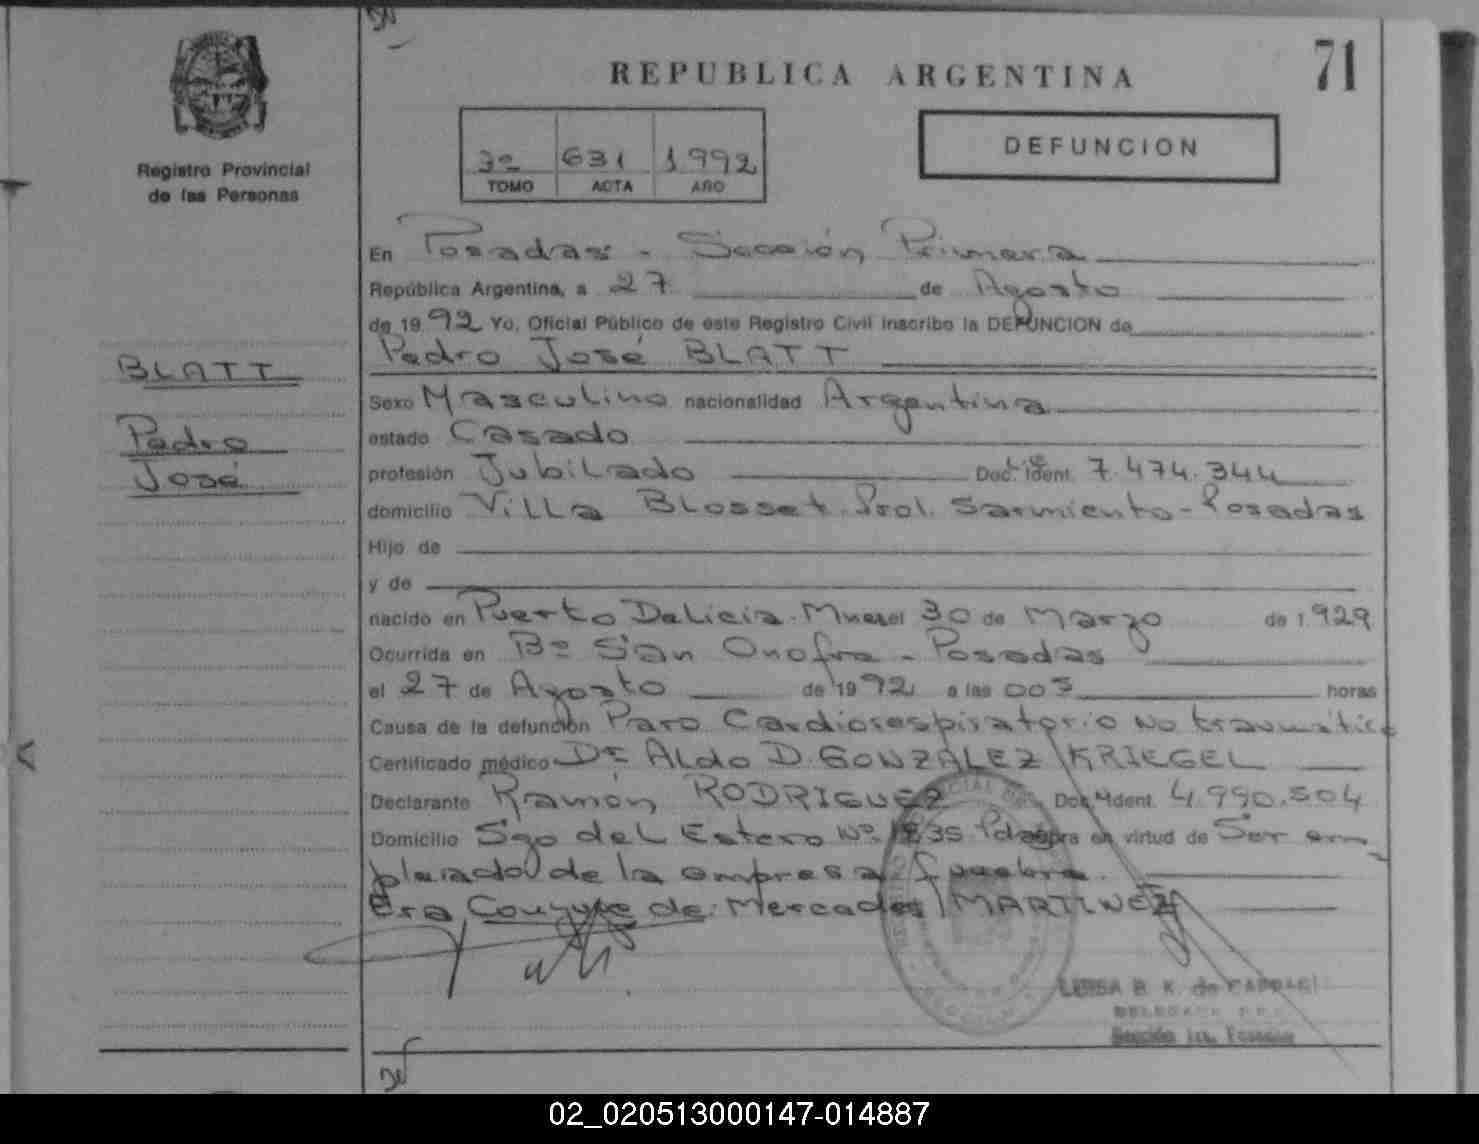 71
REPUBLICA ARGENTINA
DEFUNCION
3º 631 1992
TOMO ACTA AÑO
Registro Provincial
de las Personas
En Posadas - Sección Primera
República Argentina, a 27 de Agosto
de 1992 Yo, Oficial Público de este Registro Civil inscribo la DEFUNCION de
Pedro José BLATT
BLATT
Pedro
José
Sexo Masculino nacionalidad Argentina
estado Casado
profesión Jubilado Doc. Ident. 7.474.344
domicilio Villa Blosset. Prol. Sarmiento - Posadas
Hijo de
y de
nacido en Puerto Delicia. Mnes el 30 de Marzo de 1.929
Ocurrida en Bº San Onofre - Posadas
el 27 de Agosto de 1992 a las 00
horas
Causa de la defunción Paro Cardiorespiratorio no traumático
Certificado médico Dr Aldo D. GONZALEZ KRIEGEL
Declarante Ramón RODRIGUEZ Doc. Ident. 4.990.504
Domicilio Sgo del Estero Nº 1835 Pdas obra en virtud de Ser em_
pleado de la empresa funebre.
Era Conyuge de: Mercedes MARTINEZ
LUISA B. K. de
02_020513000147-014887